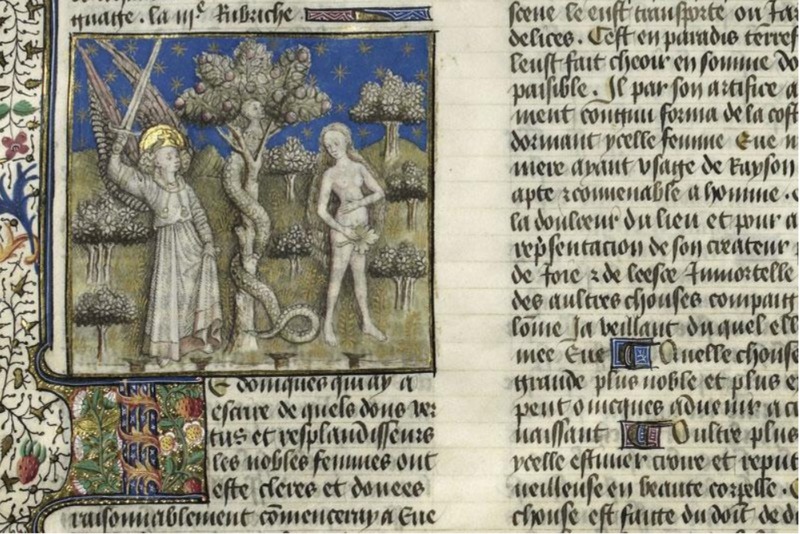 quaige . la iije Rubriche
E doniques qui ay a
escrire de quels dons ver
tus et resplandisseurs
les nobles femmes ont
este cleres et donees
raisonnablement cōmenceray a Eue
scene le eust transporte ou Jar
delices . Cest en paradis terres
leust fait cheoir en somme do
paisible . Il par son artifice a
ment congnu forma de la cost
dormant ycelle femme Eue n
mere ayant vsage de Rayson
apte z conuenable a homme .
la doulceur du lieu et pour a
repsentacion de son createur
de Joie z de leesce Immortelle
des aultres chouses compaing
lōme Ja veillant du quel ell
mee Eue Quelle chouse
grande plus noble et plus e
peut oncques aduenir a c
naissant Oultre plus
ycelle estimer croire et reput
ueilleuse en beaute corpelle .
chouse est faitte du doit de di